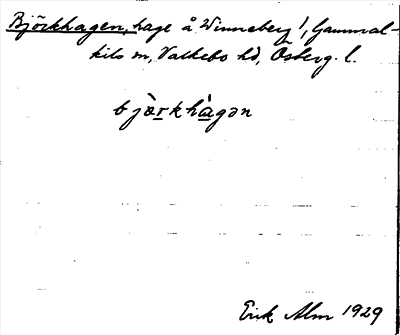 Björkhagen, hage å Winneberg /, Gammal-
kils sn, Valkebo hd, Österg. l.
bjæ̀rkhàgən
Erik Alm 1929